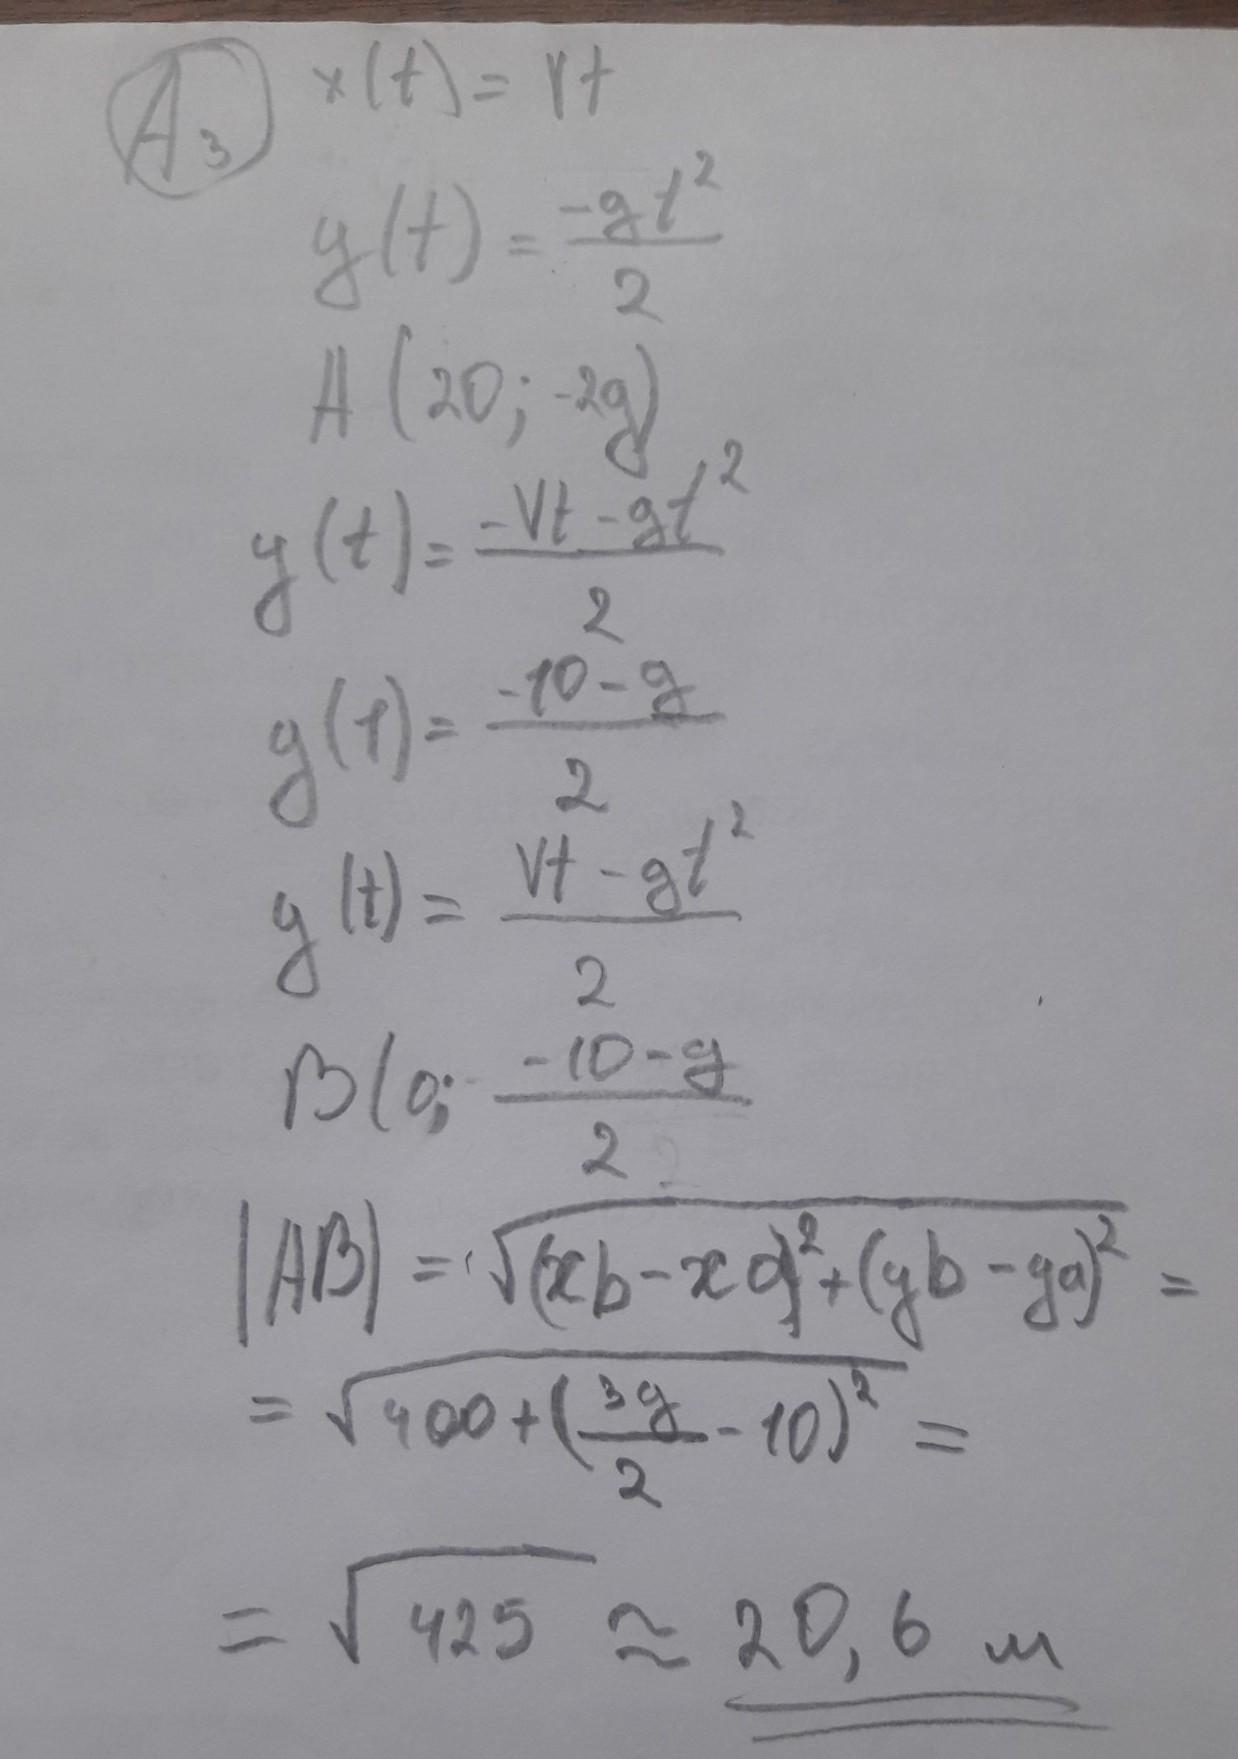 A₃ x(t) = Vt
y(t) = -gt²/2
A(20; -2g)
y(t) = (-Vt - gt²)/2
y(1) = (-10 - g)/2
y(t) = (Vt - gt²)/2
B(0; (-10 - g)/2
|AB| = √((xb - xa)² + (yb - ya)²) =
= √(400 + (3g/2 - 10)²) =
= √425 ≅ 20,6 м